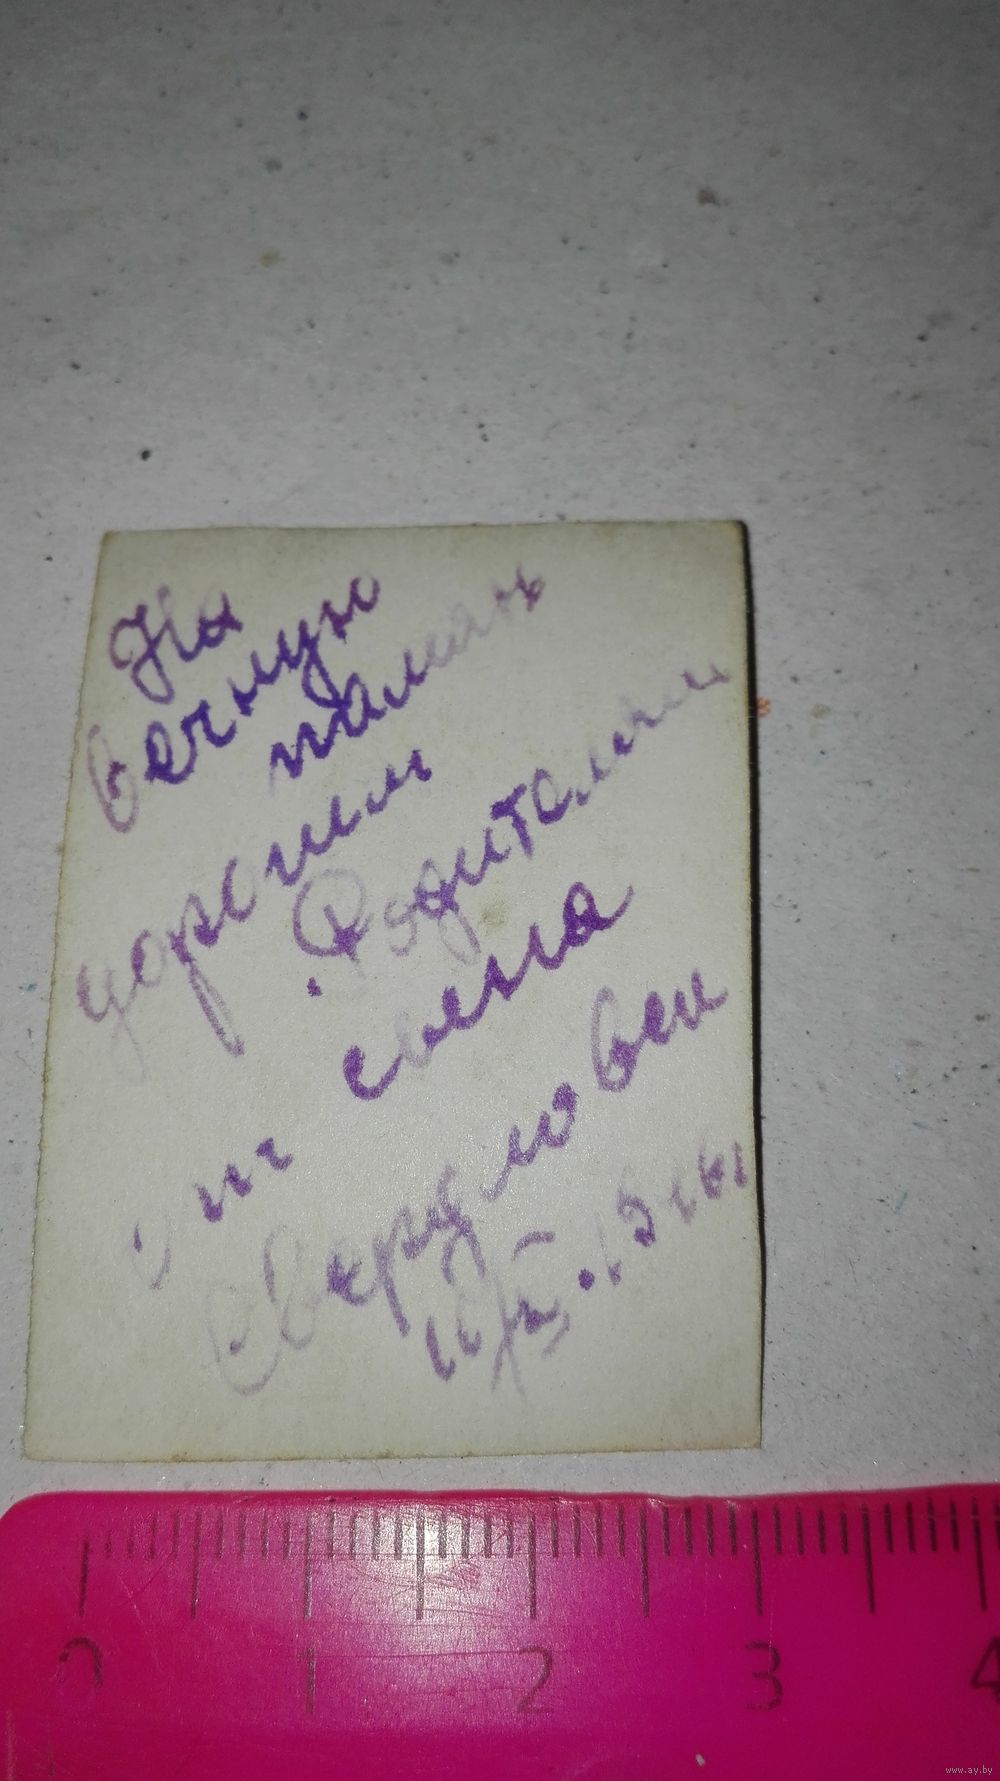 На
вечную
память
дорогим
Родителям
от сына
Свердловск
0
1
2
3
4
www.ay.by